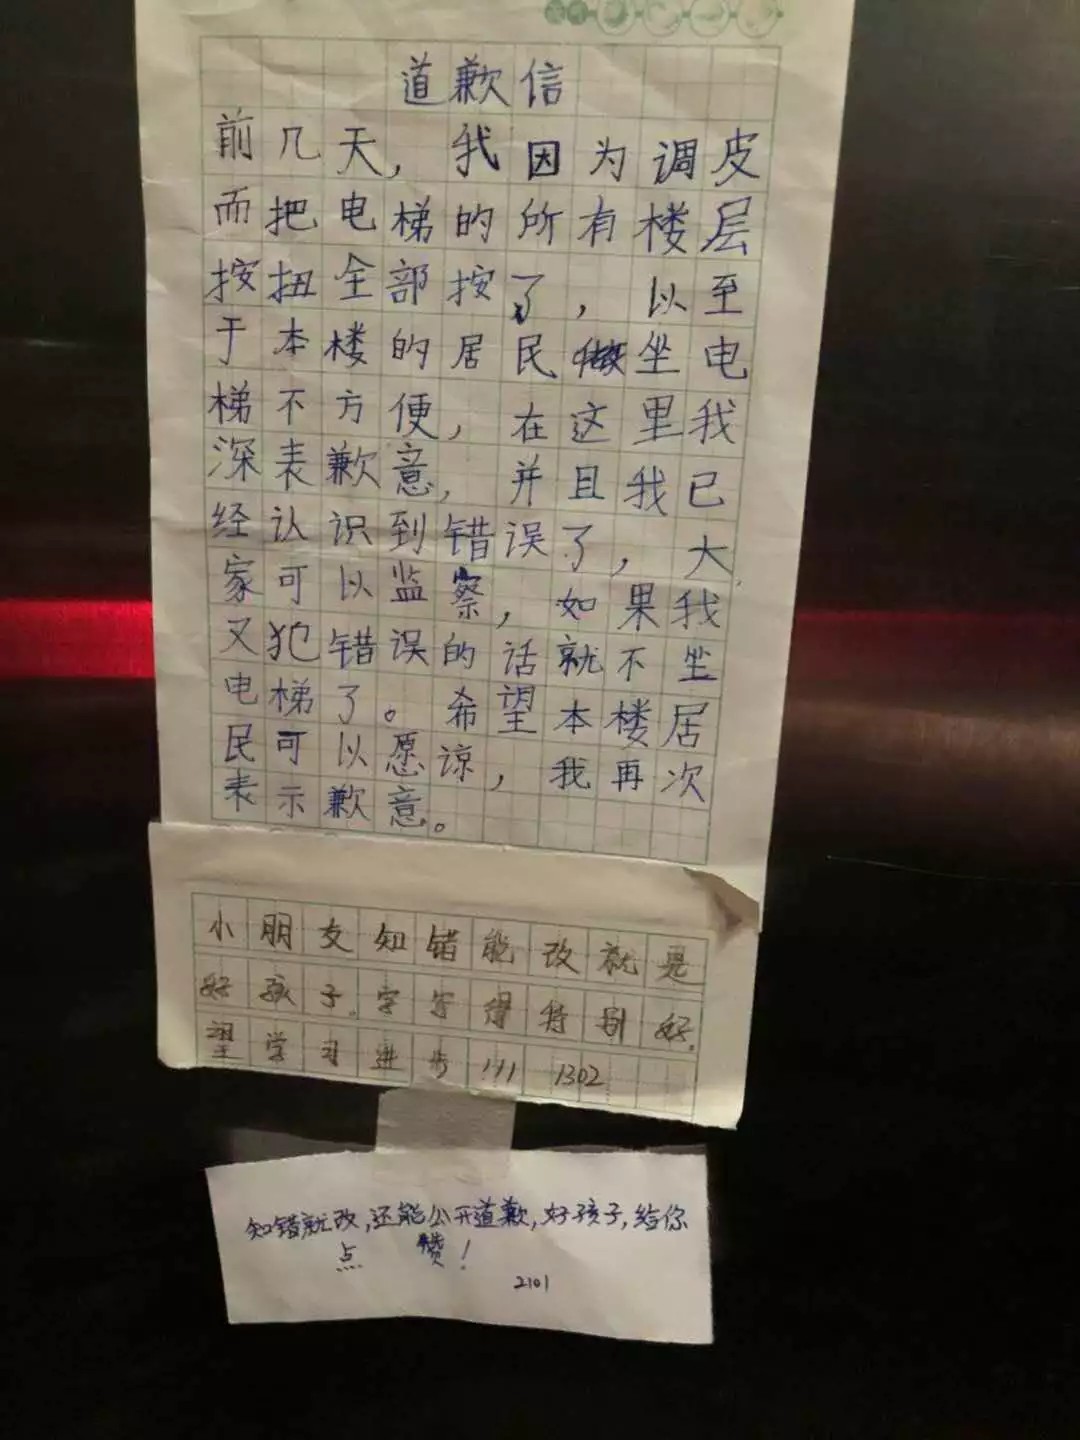 道歉信
前几天，我因为调皮
而把电梯的所有楼层
按扭全部按了，以至
于本楼的居民做坐电
梯不方便，在这里我
深表歉意，并且我已
经认识到错误了，大
家可以监察，如果我
又犯错误的话就不坐
电梯了。希望本楼居
民可以愿谅，我再次
表示歉意。
小朋友知错能改就是
好孩子。字写得特别好。
望学习进步!!! 1302
知错就改，还能公开道歉，好孩子，给你
点赞！
2101